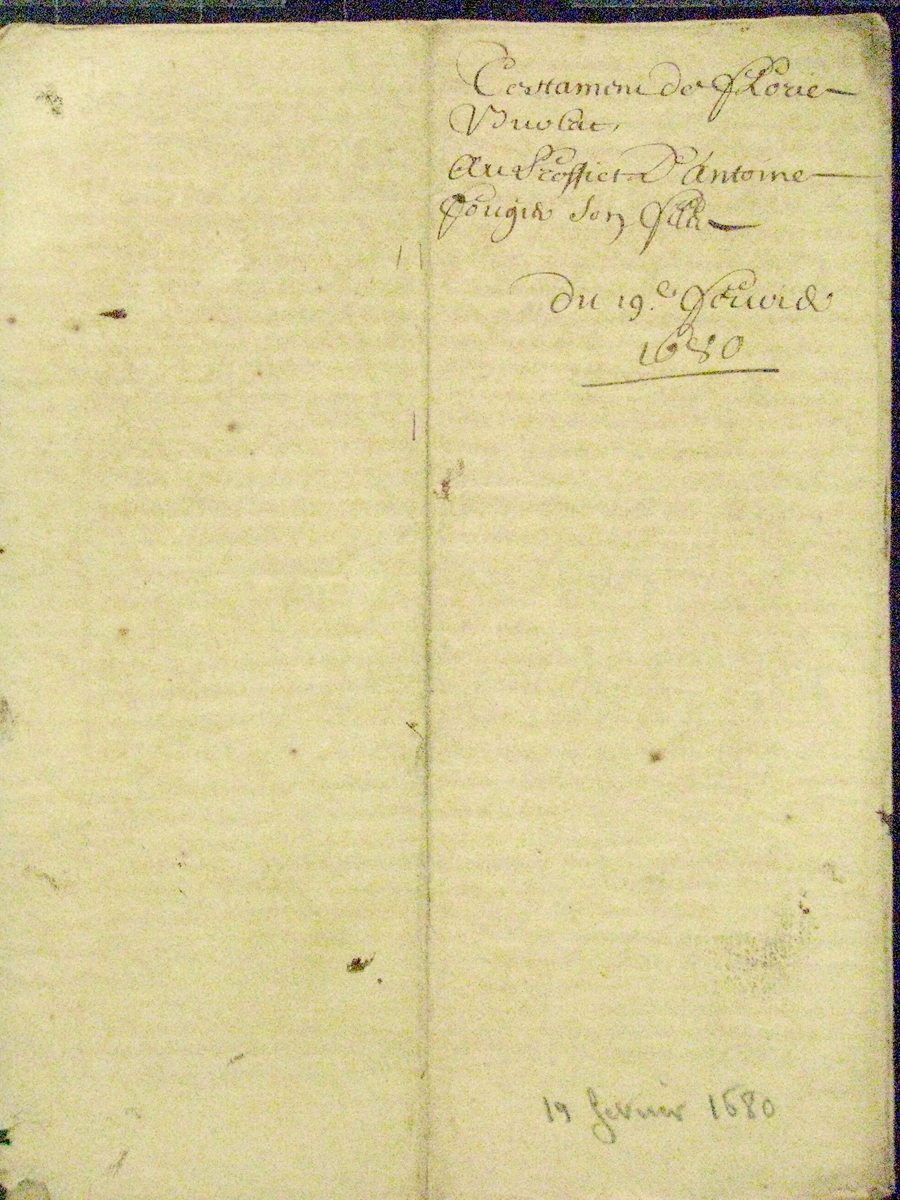 Testament de fflorie
Vuolat,
Au Proffict D'Antoine
Pougis son filz
du 19.e febvrie
1680
19 fevrier 1680